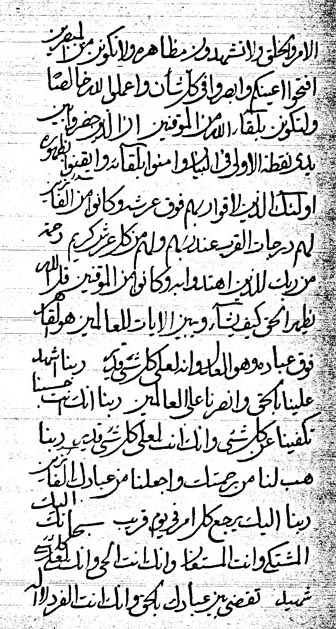 الامر والخلق ولا تشهدون مظاهره ولا تكونن من المبصرين
افتحوا اعينكم وابصروا في كل شأن واعملوا لله خالصا
ولتكونن بلقاء الله من الموقنين ان الذين حضروا بين
يدي نقطة الاولى في البيان وامنوا بلقائه وايقنوا بظهوره
اولئك الذين لاقوا ربهم فوق عرشه وكانوا من الفائزين
لهم درجات القرب عند ربهم ولهم من كل عز كريم رحمة
من ربك للذين اهتدوا به وكانوا من الموقنين قل الله
يظهر الحق كيف يشاء ويبين الايات للعالمين هو القاهر
فوق عباده وهو العالم وانه لعلى كل شيء قدير ربنا اشهد
علينا بالحق وانصرنا على العالمين ربنا انك انت حسبنا
تكفينا عن كل شيء وانك انت لعلى كل شيء قدير ربنا
هب لنا من رحمتك واجعلنا من عبادك الفائزين
ربنا اليك يرجع كل امر في يوم قريب سبحانك اليك
المشتكى وانت المستعان وانك انت الحي وانك لعلى كل شيء
شهيد تقضي بين عبادك بالحق وانك انت الفرد لا اله